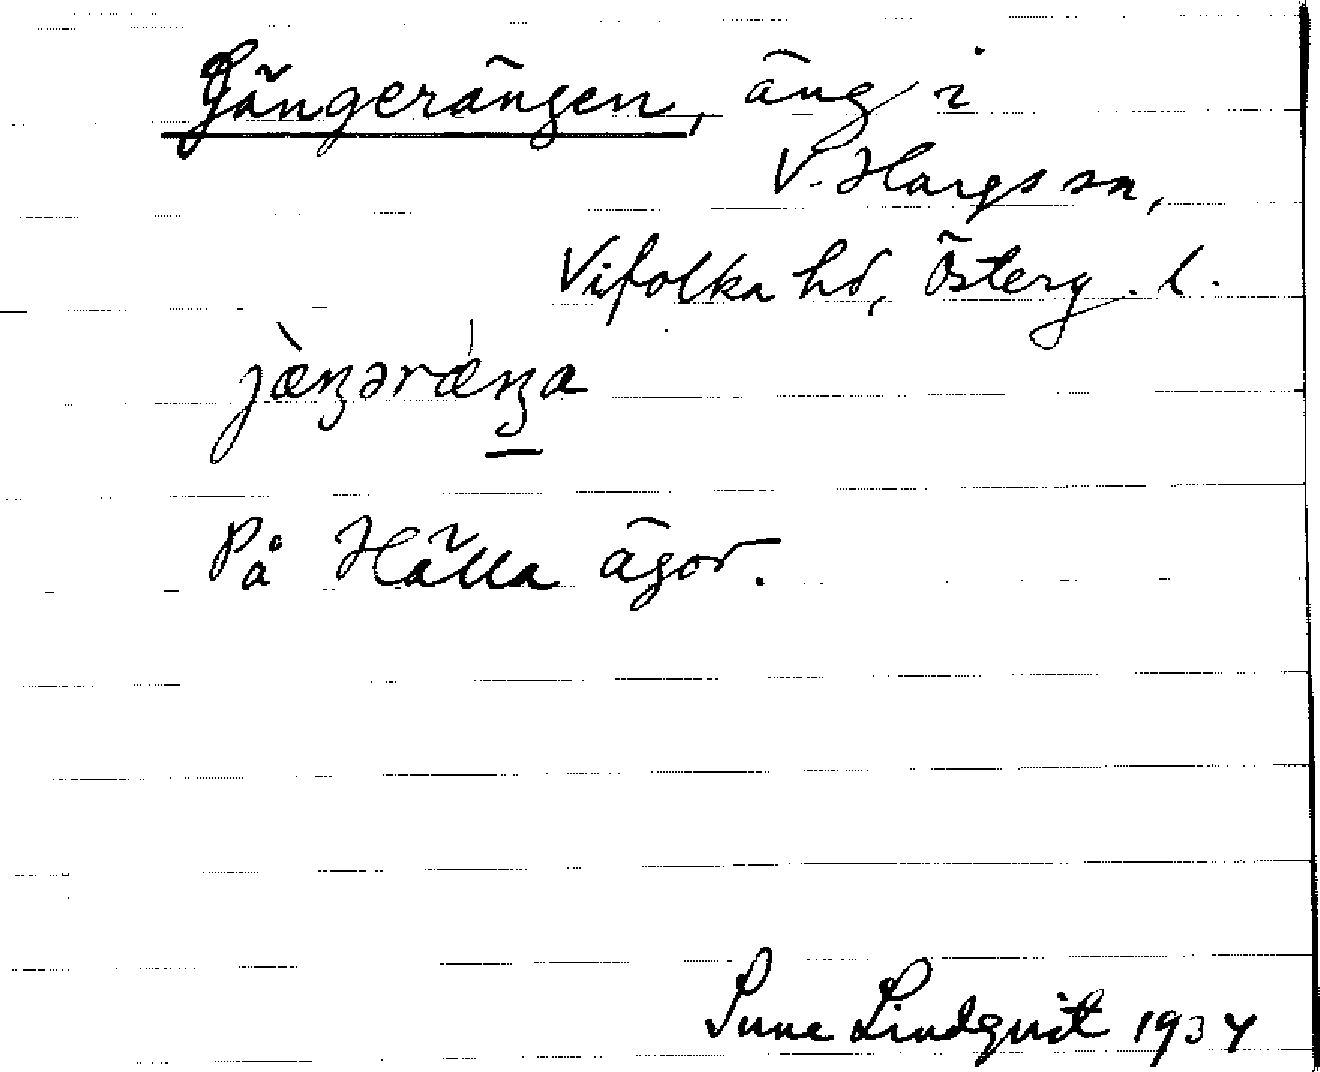 Gängerängen, äng i
V. Hargs sn,
Vifolka hd, Österg. l.
jæ̀ŋərǽŋa
På Hälla ägor.
Sune Lindqvist 1934